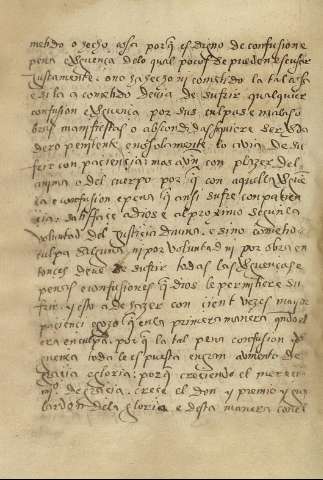 metido o hecho cosa por q es digno de confusion e
pena e verguença de lo qual pocos se pueden escusar
justamente: o no ha hecho ni cometido la tal cosa
e si la a cometido devia de sufrir qualquier
confusion e verguença por sus culpas e malas o
bras manifiestas o abscondidas si quiere ser verda
dero penitente e no solamente lo avia de su
frir con paciencia mas aun con plazer del
anima o del cuerpo por q con aquella vergue
ça e confusion e pena q ansi sufre con pacien
cia satisfaze a dios e al proximo segun la
voluntad del justicia divina. e si no cometio
culpa alguna ni por voluntad ni por obra en
tonces deve de sufrir todas las verguenças e
penas e confusiones q dios le permitiere su
frir. y esto a de hazer con cient vezes mayor
paciencia e gozo q en la primera manera quando
era en culpa. por q la tal pena confusion e ver
guença toda le es puesta en gran aumento de
gracia e gloria: por q creciendo el mereci
mj.º de gracia. crece el don y premio y gua
lardon de la gloria. e desta manera con el